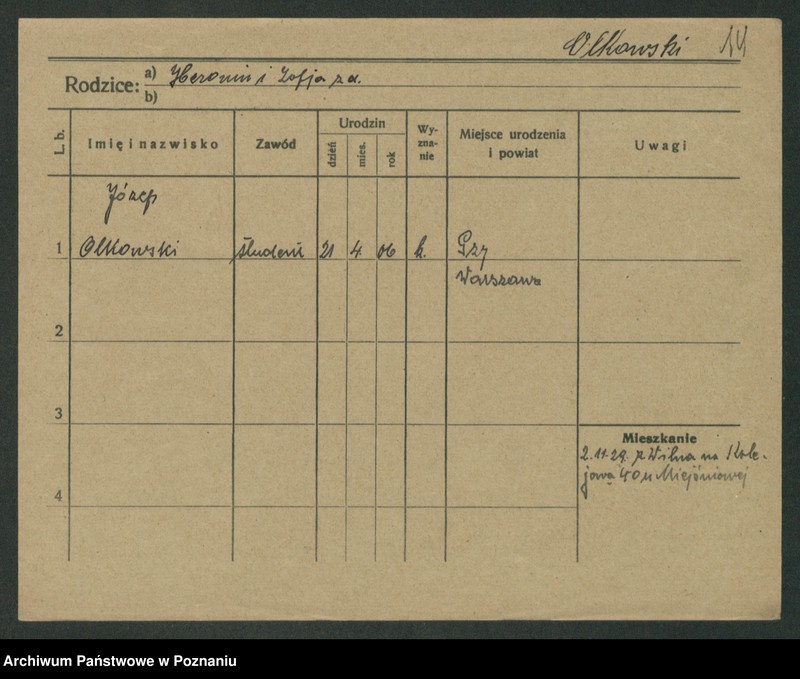 Olkowski 14
Rodzice: a) Heronim i Zofja z d.
b)
L. b. Imię i nazwisko Zawód Urodzin dzień mies. rok Wyznanie Miejsce urodzenia i powiat Uwagi
Józef
1 Olkowski student 21 4 06 k.
Warszawa
2
3
Mieszkanie
2.11.29. z Wilna na Kole-
jową 40 u
4
Archiwum Państwowe w Poznaniu